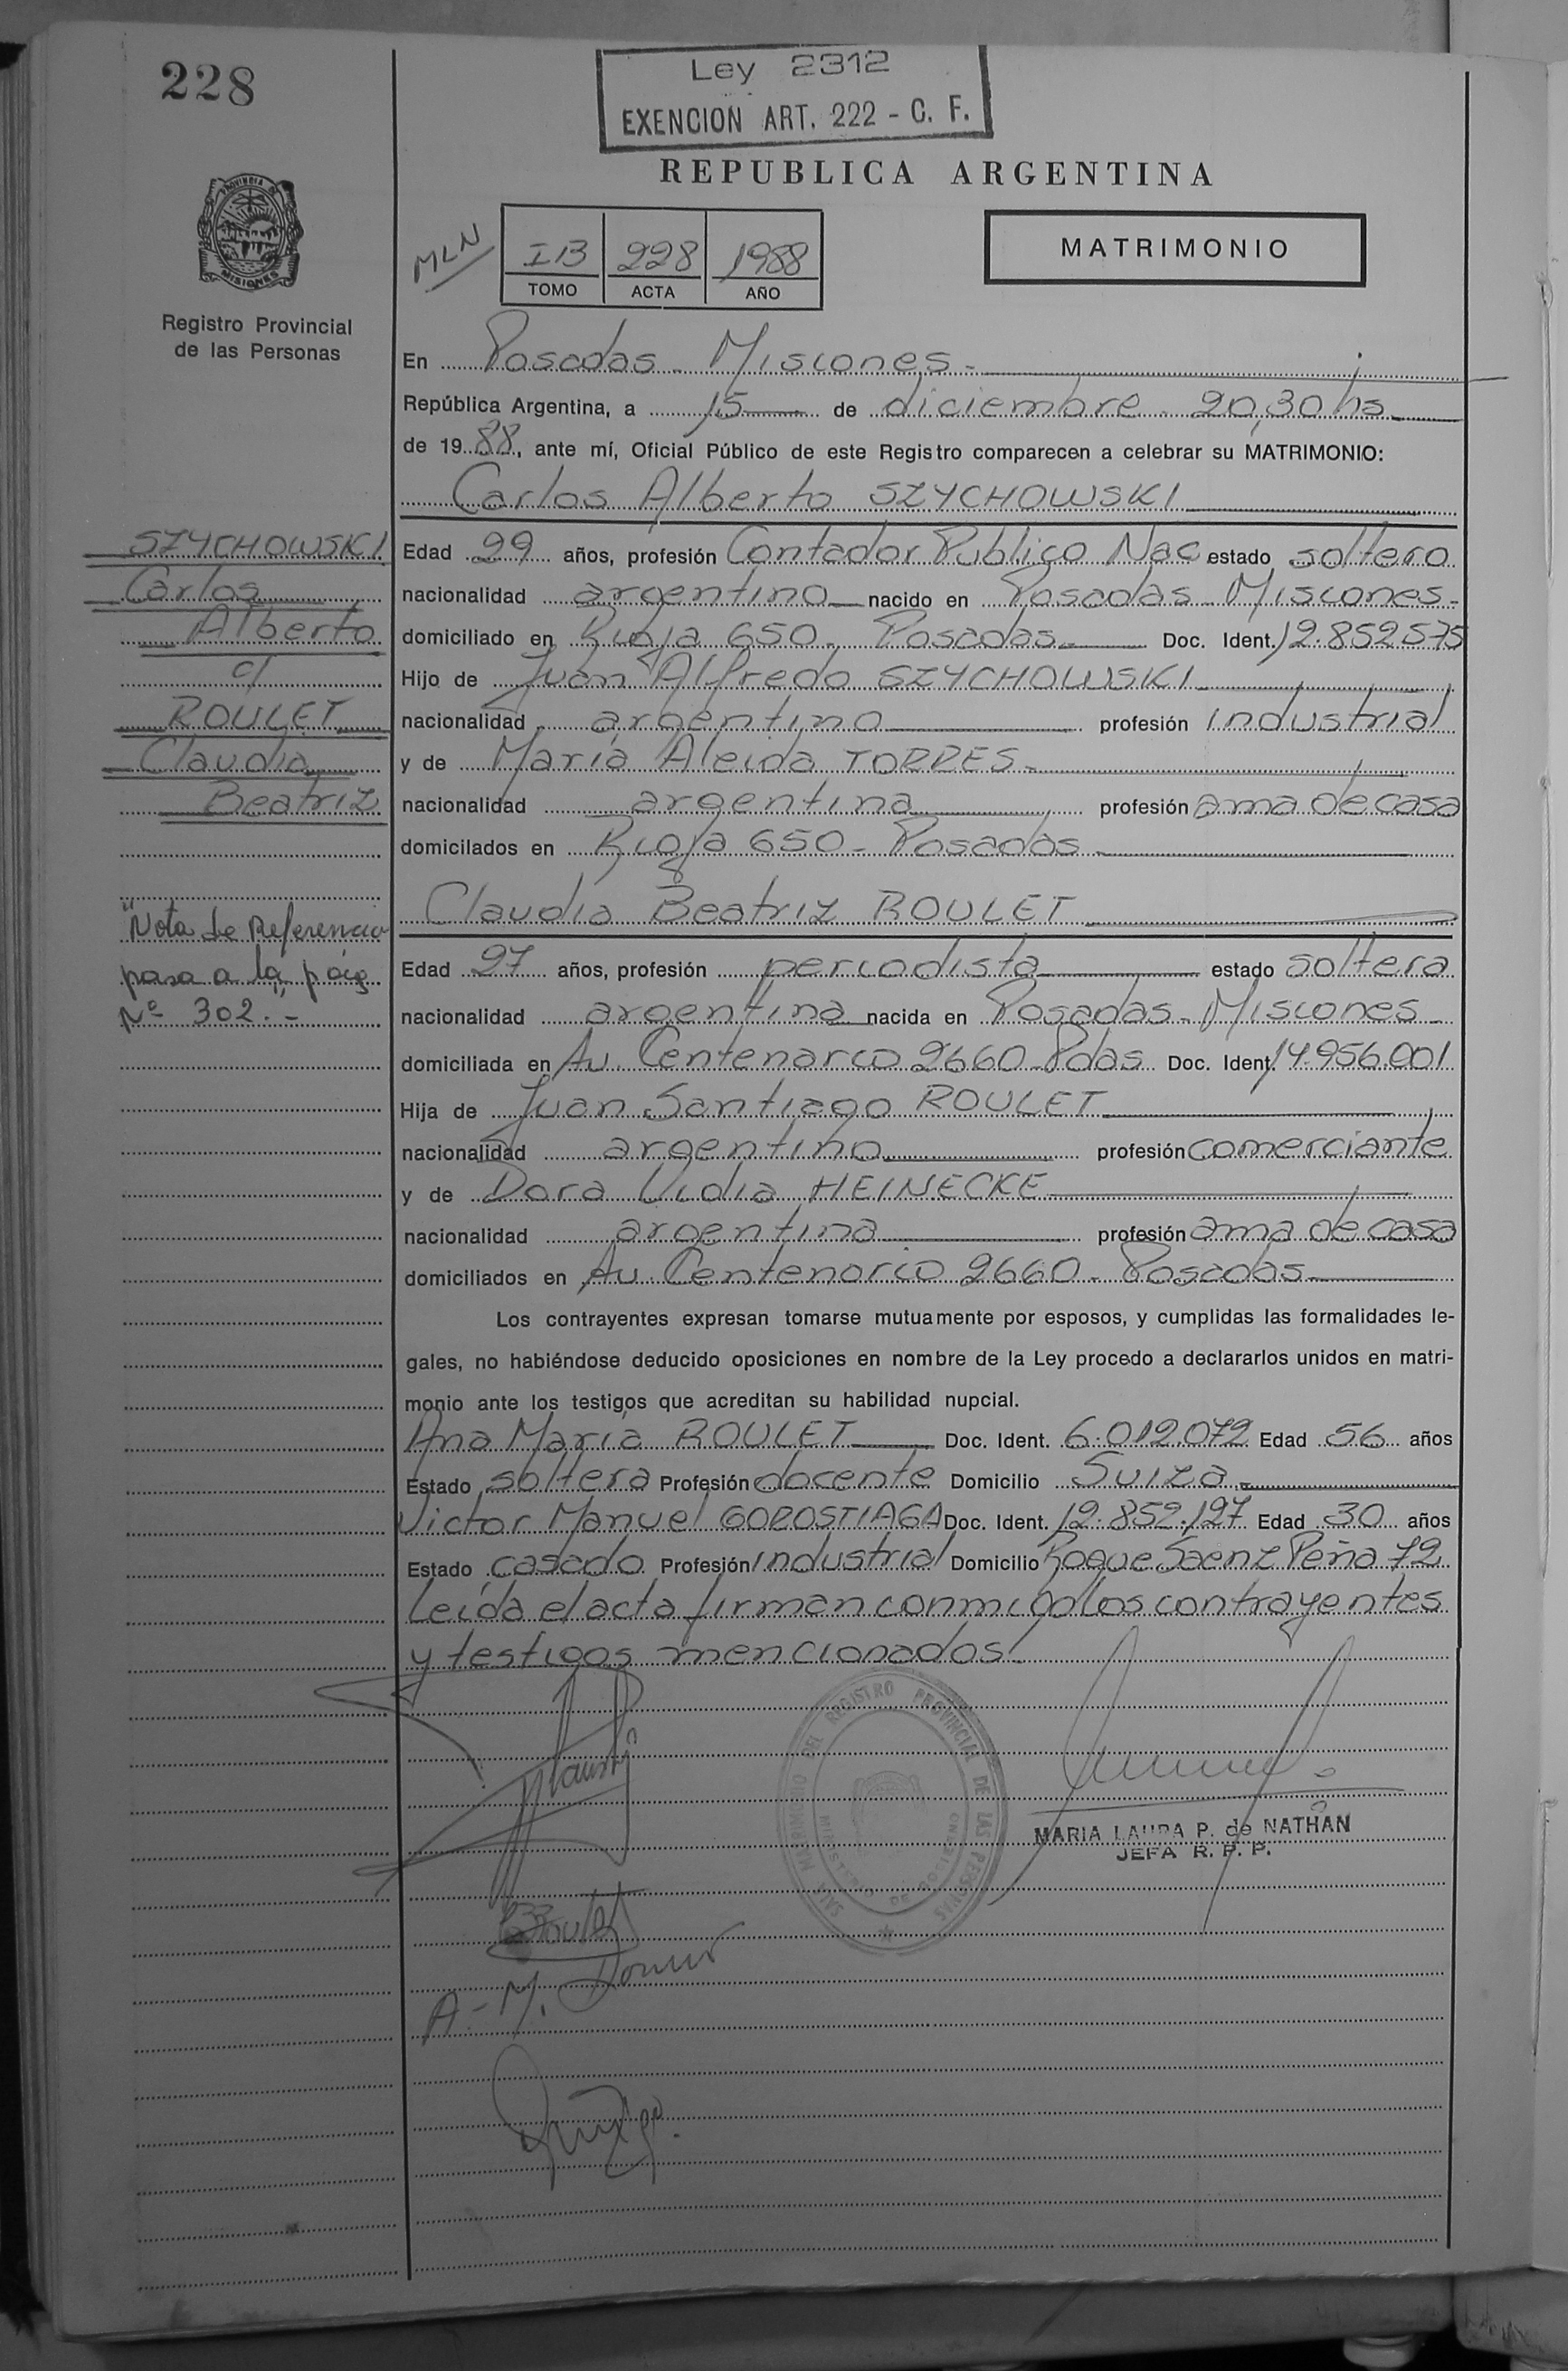 228
Ley 2312
EXENCION ART. 222 - C. F.
REPUBLICA ARGENTINA
PROVINCIA DE
MISIONES
Registro Provincial
de las Personas
MLN
I B 228 1988
TOMO ACTA AÑO
MATRIMONIO
En Posadas - Misiones -
República Argentina, a 15 de diciembre - 20,30 hs
de 1988, ante mí, Oficial Público de este Registro comparecen a celebrar su MATRIMONIO:
Carlos Alberto SZYCHOWSKI
SZYCHOWSKI
Carlos
Alberto
c/
ROULET
Claudia
Beatriz
"Nota de Referencia
pasa a la pág
Nº 302.-"
Edad 29 años, profesión Contador Publico Nac estado soltero
nacionalidad argentino nacido en Posadas - Misiones -
domiciliado en Rioja 650 - Posadas Doc. Ident. 12.852.575
Hijo de Juan Alfredo SZYCHOWSKI
nacionalidad argentino profesión industrial
y de María Aleida TORRES -
nacionalidad argentina profesión ama de casa
domicilados en Rioja 650 - Posadas -
Claudia Beatriz ROULET
Edad 27 años, profesión periodista estado soltera
nacionalidad argentina nacida en Posadas - Misiones -
domiciliada en Av. Centenario 2660 - Pdas Doc. Ident. 14.956.001
Hija de Juan Santiago ROULET
nacionalidad argentino profesión comerciante
y de Dora Lidia HEINECKE
nacionalidad argentina profesión ama de casa
domiciliados en Av. Centenario 2660 - Posadas
Los contrayentes expresan tomarse mutuamente por esposos, y cumplidas las formalidades le-
gales, no habiéndose deducido oposiciones en nombre de la Ley procedo a declararlos unidos en matri-
monio ante los testigos que acreditan su habilidad nupcial.
Ana María ROULET Doc. Ident. 6.012.072 Edad 56 años
Estado soltera Profesión docente Domicilio Suiza
Victor Manuel GOROSTIAGA Doc. Ident. 12.852.127 Edad 30 años
Estado casado Profesión industrial Domicilio Roque Saenz Peña 72
Leída el acta firman conmigo los contrayentes
y testigos mencionados.
SALA MATRIMONIO DEL REGISTRO PROVINCIAL DE LAS PERSONAS
MINISTERIO DE GOBIERNO
MARIA LAURA P. de NATHAN
JEFA R. P. P.
Roulet
A - M.